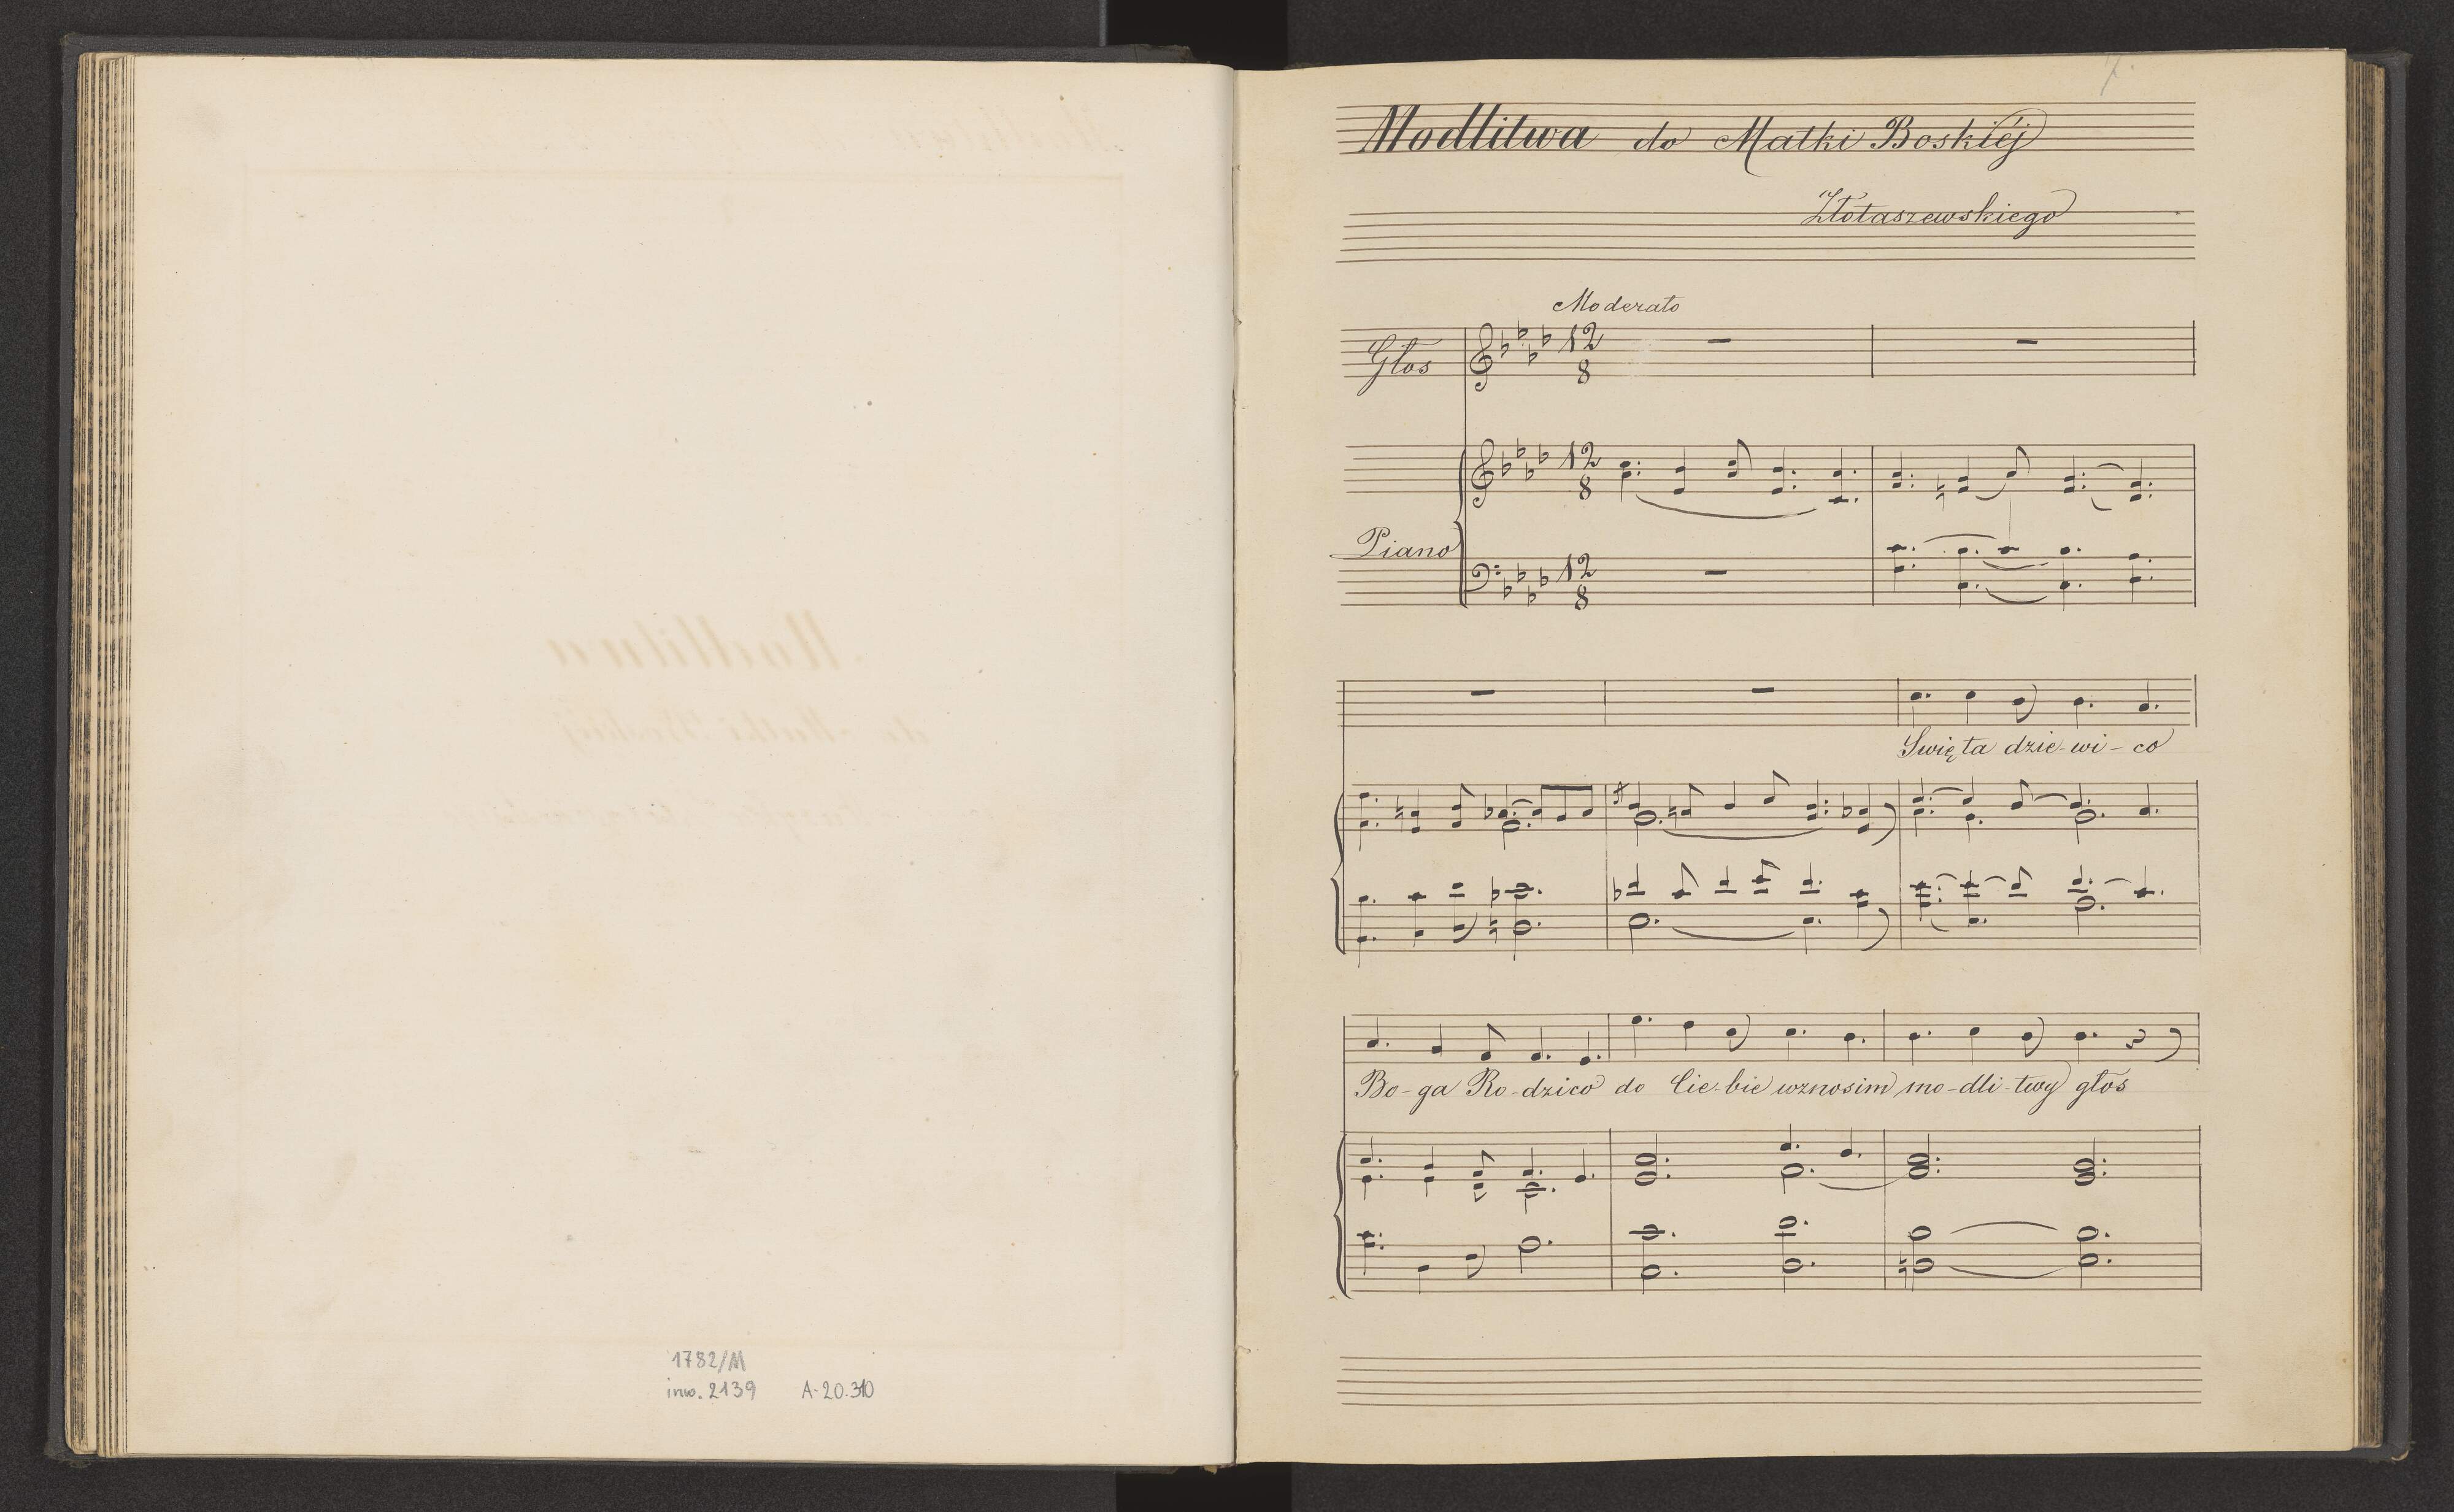 1782/M
inw. 2139 A-20.310
7.
Modlitwa do Matki Boskiéj
Złotaszewskiego
Moderato
Głos
12
8
12
8
Piano
12
8
Swięta dzie-wi-co
Bo-ga Ro-dzico do Cie-bie wznosim mo-dli-twy głos